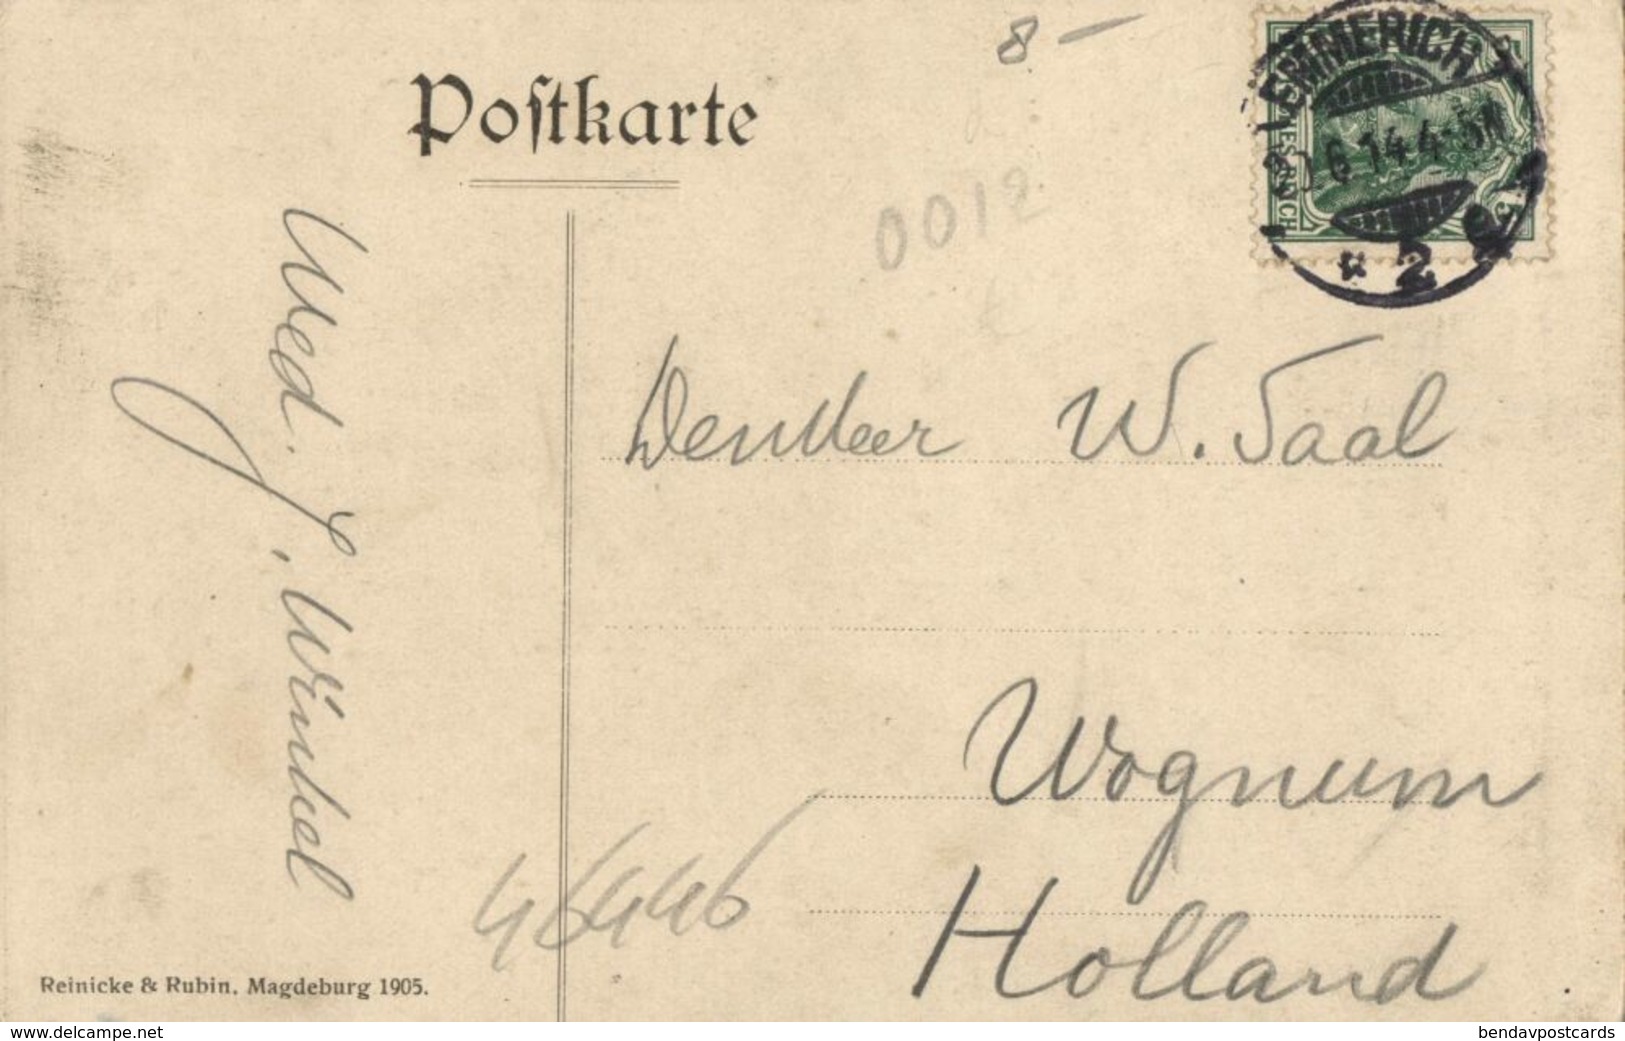 8 –
Poſtkarte
EMMERICH
20 6 14 4-5N
* 2
0012
Den Heer W. Saal
Wognum
Holland
Wed. J. Winkel
46446
Reinicke & Rubin, Magdeburg 1905.
www.delcampe.net
bendavpostcards